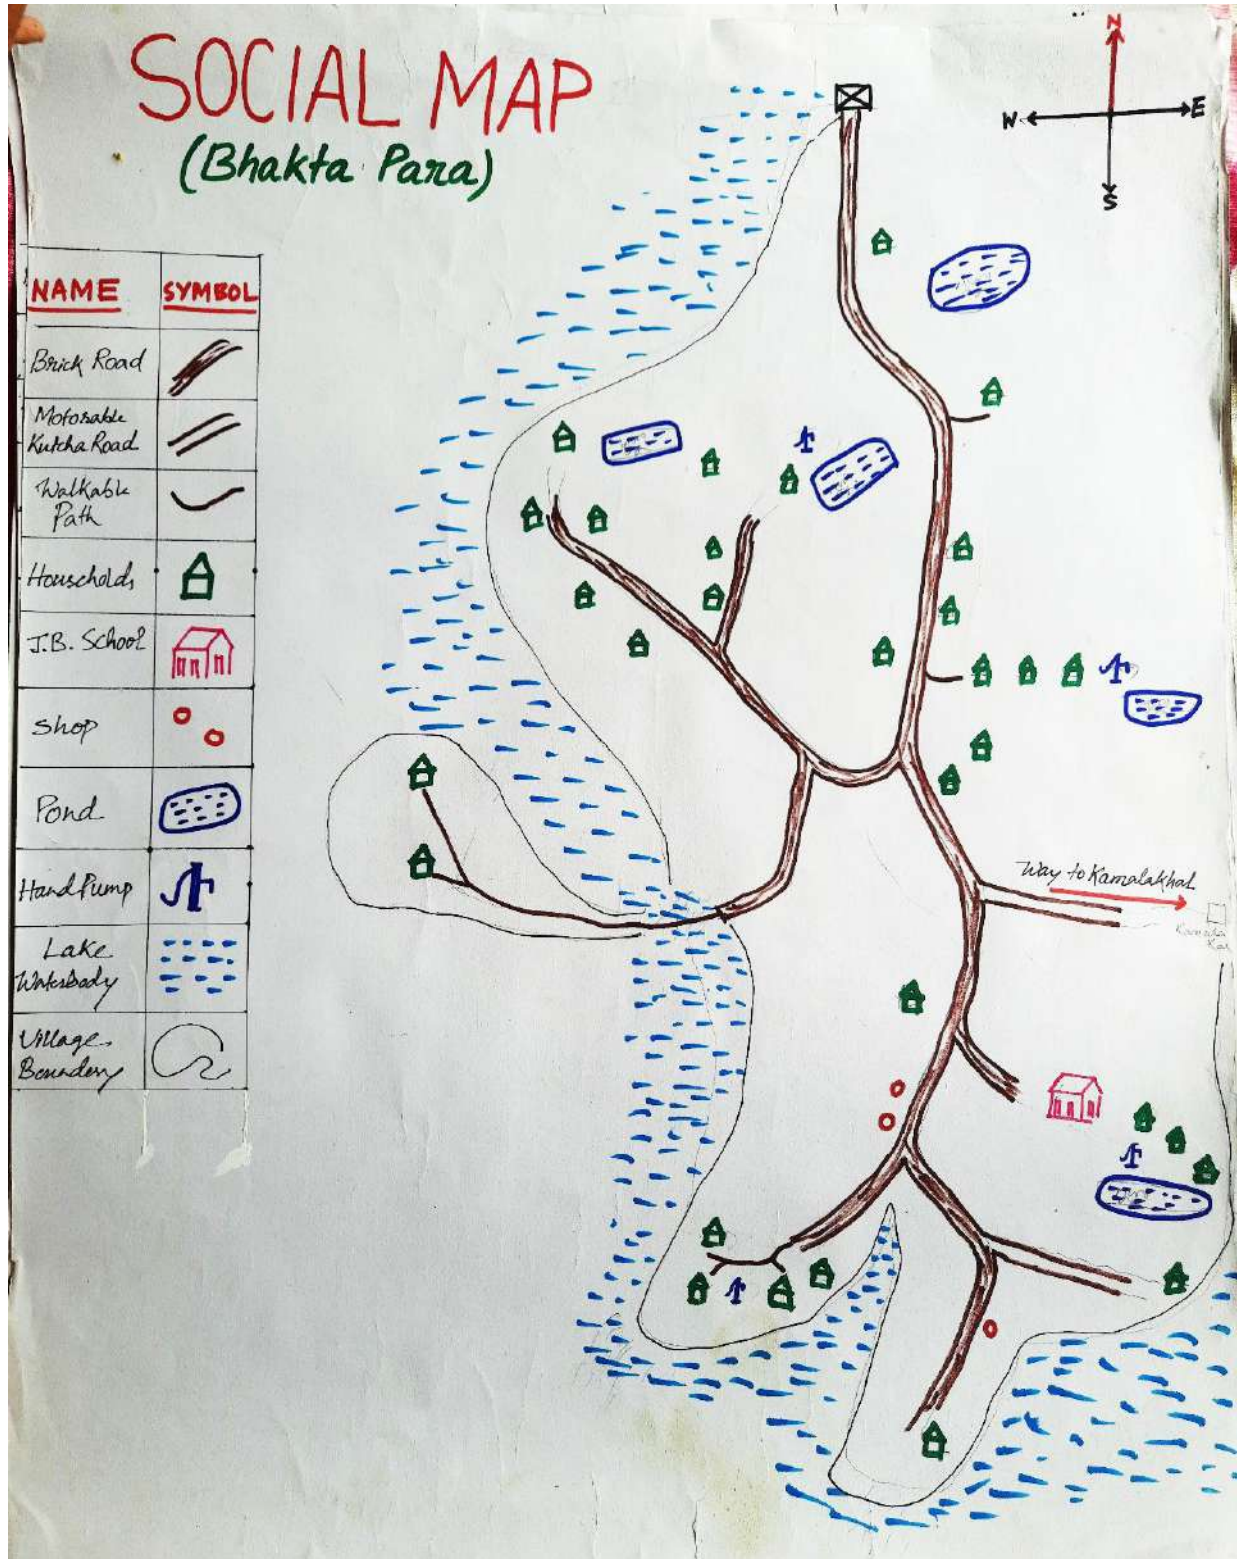 SOCIAL MAP
(Bhakta Para)
N
W
E
S
NAME SYMBOL
Brick Road
Motorable
Kutcha Road
Walkable
Path
Households
J.B. School
Shop
Pond
Hand Pump
Lake
Waterbody
Village
Boundary
Way to Kamalakhal